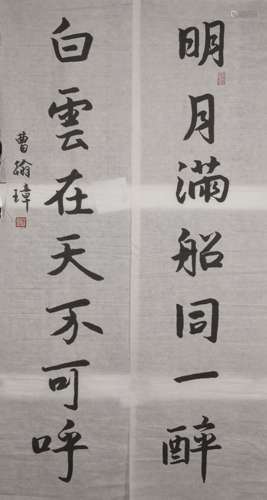 明月满船同一醉
白雲在天不可呼
曹翰璋